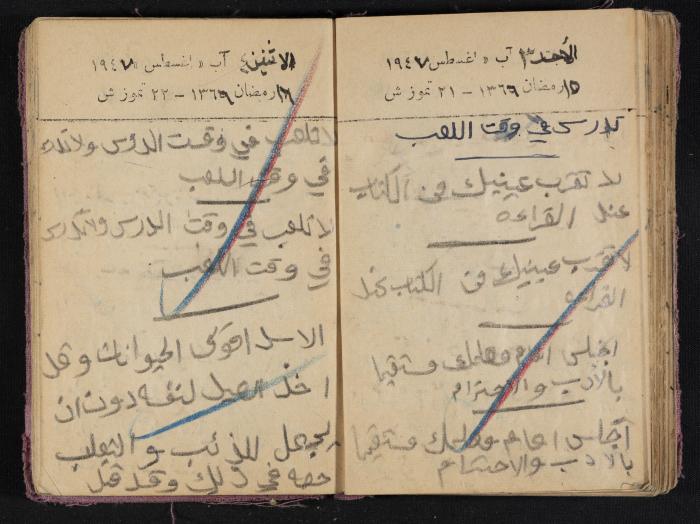 الأحد ٣ آب « اغسطس » ١٩٤٧
١٥ رمضان ١٣٦٩ – ٢١ تموز ش
تدرس في وقت اللعب
لا تقرب عينيك من الكتاب
عند القراءه
لا تقرب عينيك من الكتاب عند
القراءه
اجلس امام معلمك مستقيما
بالأدب والاحترام
اجلس امام معلمك مستقيما
بالادب والاحترام
الاثنين ٤ آب « اغسطس » ١٩٤٧
١٦ رمضان ١٣٦٩ – ٢٢ تموز ش
لا تلعب في وقت الدرس ولا
في وقت اللعب
لا تلعب في وقت الدرس ولا تدرس
في وقت اللعب
الاسد اقوى الحيوانات وقد
اخذ الصيد لنفسه دون ان
يجعل للذئب والثعلب
حصه في ذلك وقد قيل